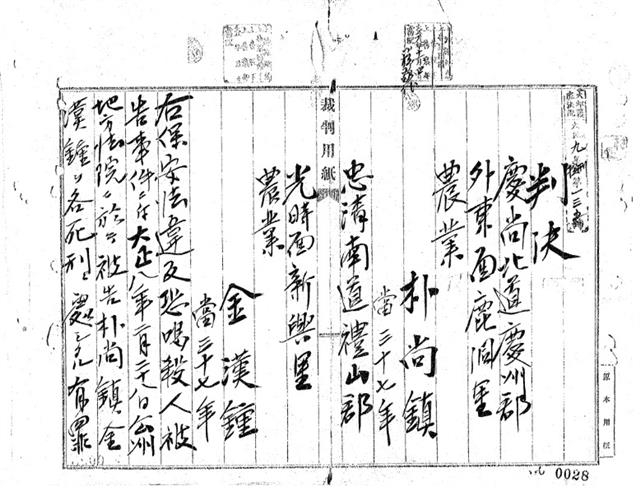 判決
慶尚北道慶州郡
外東面鹿洞里
農業
朴尚鎮
當三十七年
裁判用紙
忠清南道禮山郡
光時面新興里
農業
金漢鍾
當三十七年
右保安法違反恐喝殺人被
告事件ニ付大正九年二月廿八日公州
地方法院ニ於テ被告朴尚鎮金
漢鍾ヲ各死刑ニ處シタル有罪
原本用紙
0028